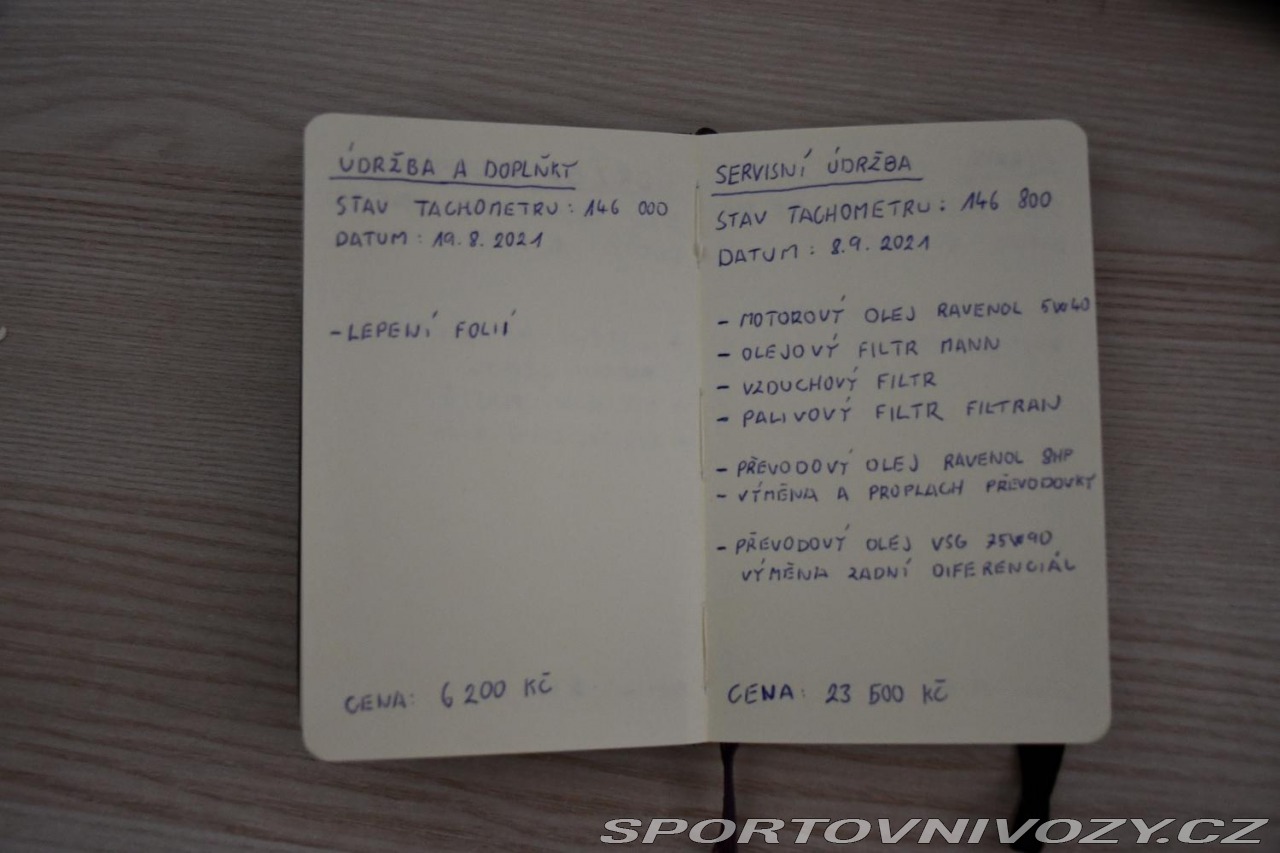 ÚDRŽBA A DOPLŇKY
STAV TACHOMETRU: 146 000
DATUM: 19.8.2021
-LEPENÍ FOLIÍ
CENA: 6 200 KČ
SERVISNÍ ÚDRŽBA
STAV TACHOMETRU: 146 800
DATUM: 8.9.2021
- MOTOROVÝ OLEJ RAVENOL 5W40
- OLEJOVÝ FILTR MANN
- VZDUCHOVÝ FILTR
- PALIVOVÝ FILTR FILTRAN
- PŘEVODOVÝ OLEJ RAVENOL 8HP
- VÝMĚNA A PROPLACH PŘEVODOVKY
- PŘEVODOVÝ OLEJ VSG 75W90
VÝMĚNA ZADNÍ DIFERENCIÁL
CENA: 23 500 KČ
SPORTOVNIVOZY.CZ